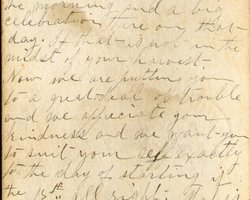 the morning and a big
celebration here on that
day. If that is not in the
midst of your harvest.
Now we are putting you
to a great deal of trouble
and we appreciate your
kindness and we want you
to suit your self exactly
to the day of starting if
the 15th all right. This is